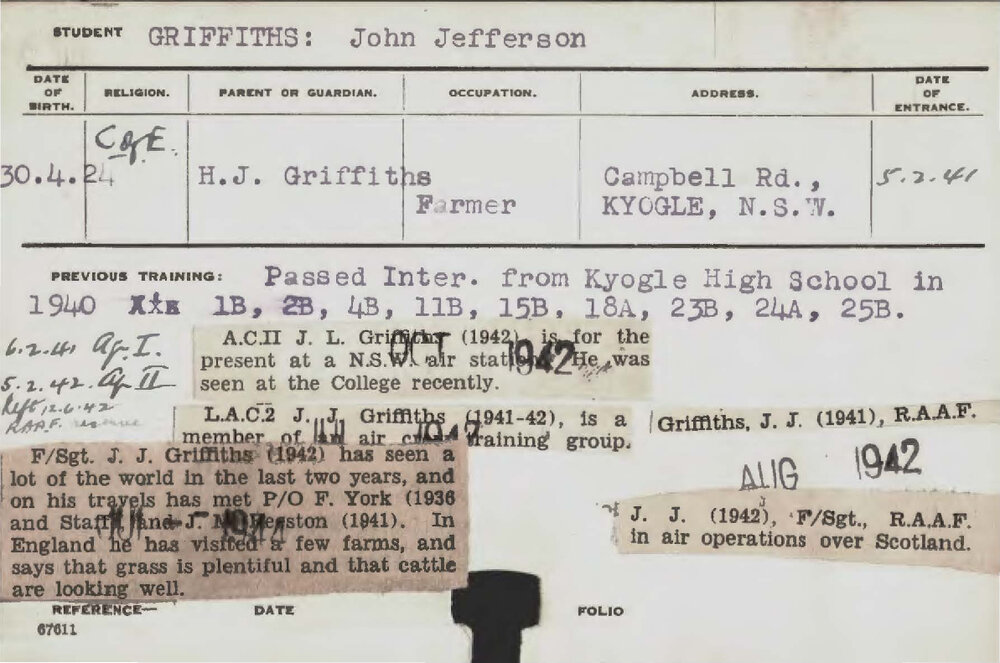 STUDENT GRIFFITHS: John Jefferson
DATE OF BIRTH. RELIGION. PARENT OR GUARDIAN. OCCUPATION. ADDRESS. DATE OF ENTRANCE.
C of E.
30.4.24 H.J. Griffiths Campbell Rd., 5.2.41
Farmer KYOGLE, N.S.W.
PREVIOUS TRAINING: Passed Inter. from Kyogle High School in
1940 1B, 2B, 4B, 11B, 15B, 18A, 23B, 24A, 25B.
6.2.41 Ag. I.
5.2.42. Ag II
Left 12.6.42
R.A.A.F. reserve
A.C.II J. L. Griffiths (1942) is for the
present at a N.S.W. air station. He was
seen at the College recently.
OCT 1942
L.A.C.2 J. J. Griffiths (1941-42), is a
member of an air crew training group.
Griffiths, J. J. (1941), R.A.A.F.
AUG 1942
F/Sgt. J. J. Griffiths (1942) has seen a
lot of the world in the last two years, and
on his travels has met P/O F. York (1936
and Staff J.
(1941). In
England he has visited a few farms, and
says that grass is plentiful and that cattle
are looking well.
J. J. (1942), F/Sgt., R.A.A.F.
in air operations over Scotland.
REFERENCE— DATE FOLIO
67611